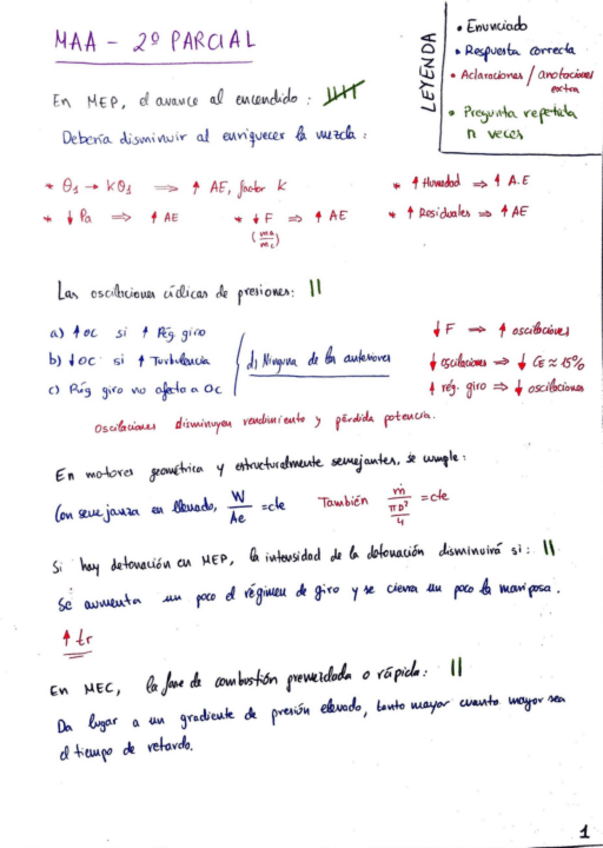 MAA - 2º PARCIAL
LEYENDA
• Enunciado
• Respuesta correcta
• Aclaraciones / anotaciones extra
• Pregunta repetida n veces
En MEP, el avance al encendido:
Debería disminuir al enriquecer la mezcla:
* θ1 → Kθ1 ⇒ ↑ AE, factor K
* ↑ Humedad ⇒ ↑ A.E
* ↓ Pa ⇒ ↑ AE
* ↓ F ⇒ ↑ AE
* ↑ Residuales ⇒ ↑ AE
(ma/mc)
Las oscilaciones cíclicas de presiones: ||
a) ↑ OC si ↑ Rég giro
b) ↓ OC si ↑ Turbulencia
c) Rég giro no afecta a OC
d) Ninguna de las anteriores
↓ F ⇒ ↑ oscilaciones
↓ oscilaciones ⇒ ↓ CE ≈ 15%
↑ rég. giro ⇒ ↓ oscilaciones
Oscilaciones disminuyen rendimiento y pérdida potencia.
En motores geométrica y estructuralmente semejantes, se cumple:
Con semejanza en llenado, W/Ae = cte
También ṁ/(πD²/4) = cte
Si hay detonación en MEP, la intensidad de la detonación disminuirá si: ||
Se aumenta un poco el régimen de giro y se cierra un poco la mariposa.
↑ tr
En MEC, la fase de combustión premezclada o rápida: ||
Da lugar a un gradiente de presión elevado, tanto mayor cuanto mayor sea
el tiempo de retardo.
1